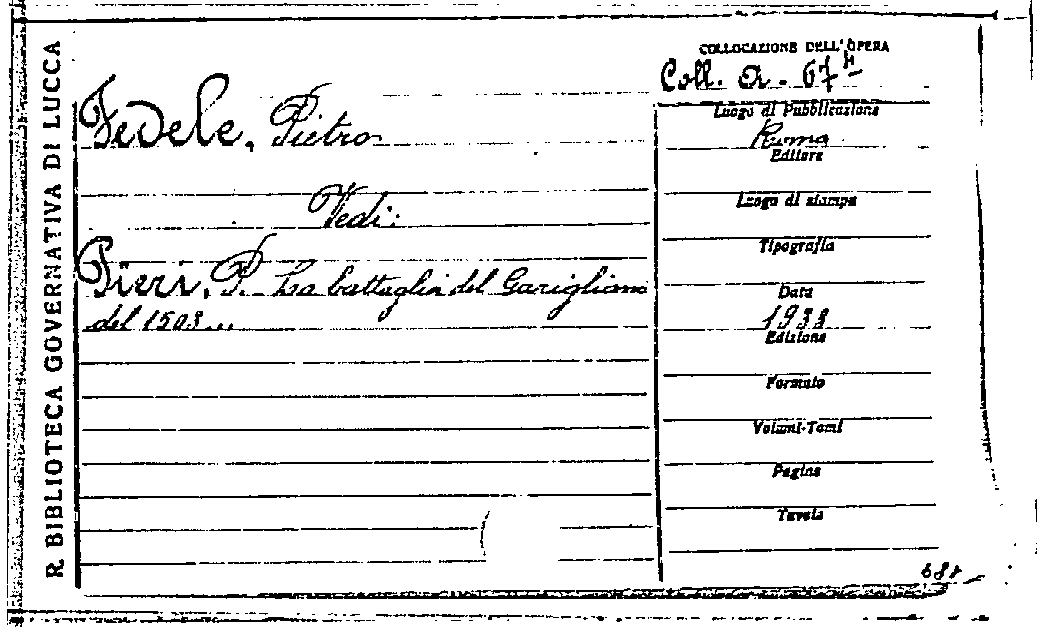 R. BIBLIOTECA GOVERNATIVA DI LUCCA
Fedele, Pietro
Vedi:
Pieri, P. La battaglia del Garigliano
del 1503...
COLLOCAZIONE DELL'OPERA
Coll. A. 67
Luogo di Pubblicazione
Roma
Editore
Luogo di stampa
Tipografia
Data
1938
Edizione
Formato
Volumi-Tomi
Pagine
Tavole